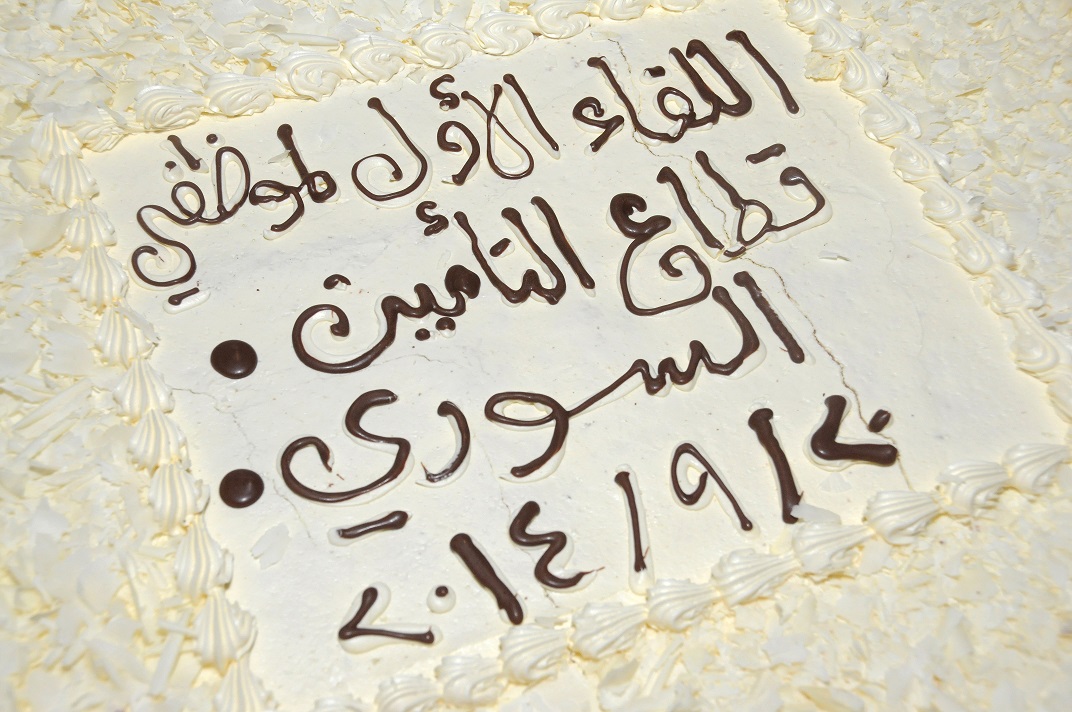 اللقاء الأول لموظفي
قطاع التأمين
السوري
٢٠١٤/٩/٢٠